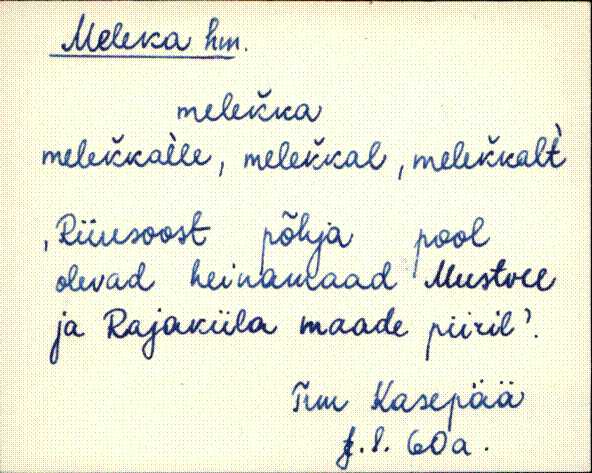 Meleka hm.
melek̆ka
melek̆kaìlle, melek̆kal, melek̆kalt̀
‚Riiusoost põhja pool
olevad heinamaad Mustvee
ja Rajaküla maade piiril’.
Trm Kasepää
s. 60a.